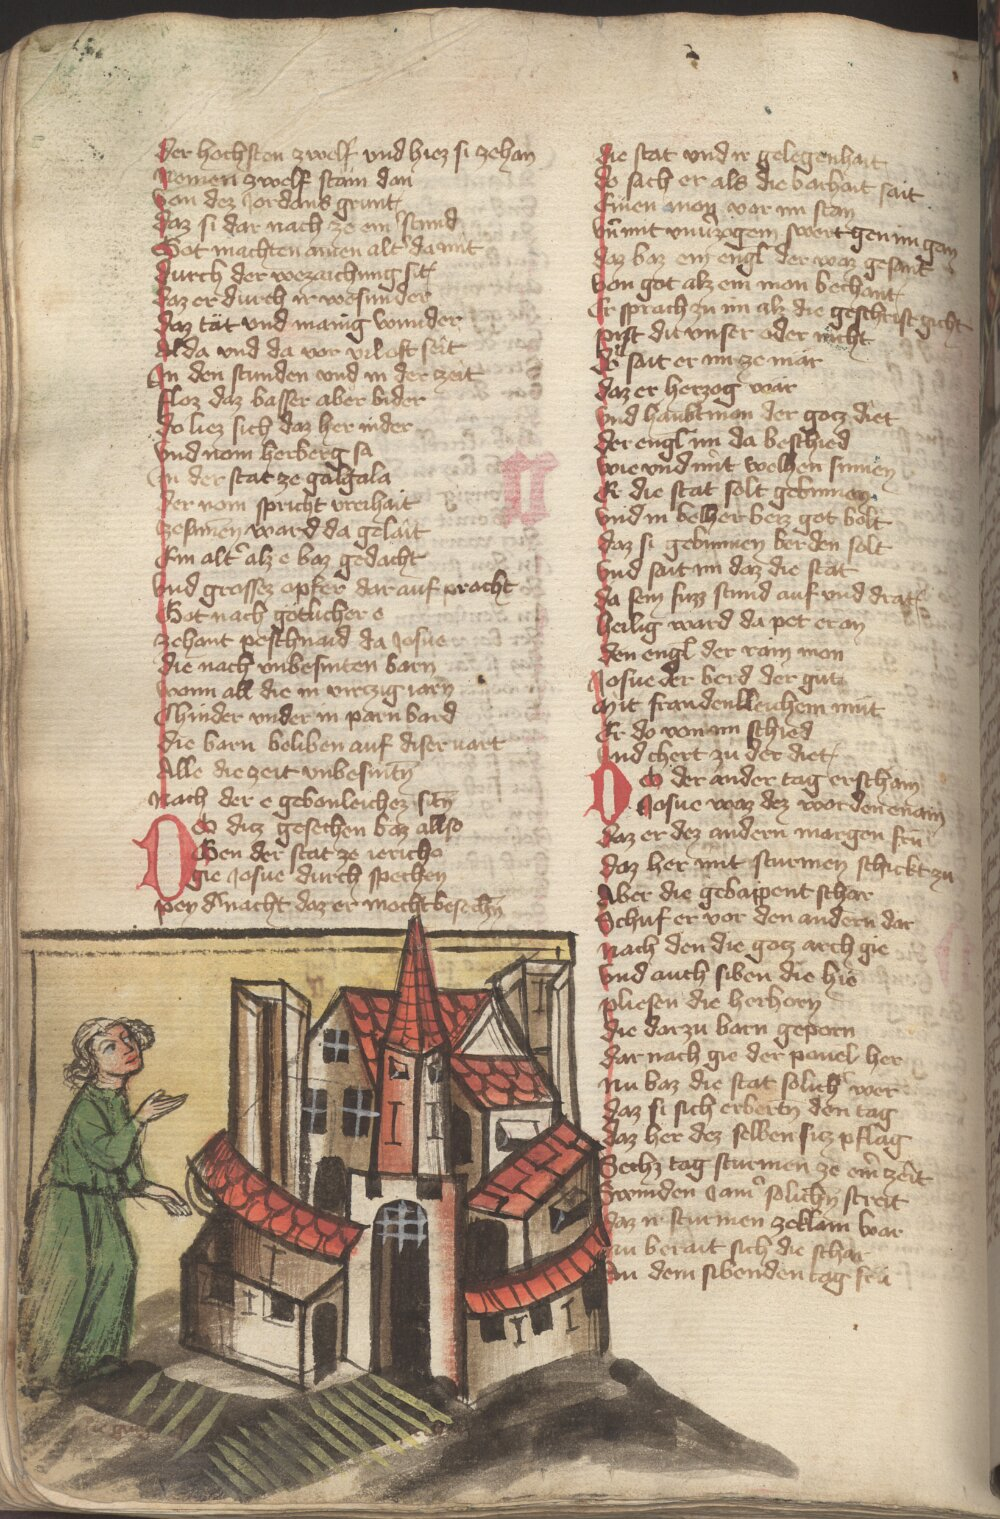 der hochsten zwelf vnd hiez si zehan
nemen zwelf stain dan
von dez Jordans grunt
daz si dar nach ze ein stund
Got machten ainen alt' da mit
durch der wezaichung sit
daz er durch ir wesunder
daz tät vnd manig wunder
alda vnd da vor vil oft seit
In den stunden vnd in der zeit
floz daz basser aber bider
do liez sich daz her nider
vnd nom herberg sa
In der stat ze galgala
der nom spricht vreihait
zesamen ward da gelait
Ein alt' alz e baz gedacht
vnd grossez opfer dar auf pracht
Got nach gotlicher e
zehant peschnaid da Josue
die nach vnbesniten barn
wonn all die in virczig iarn
Chinder vnder in parn bard
die barn beliben auf diser vart
Alle die zeit vnbesnity
nach der e gebonleichez sity
Do ditz geschen baz allso
Gen der stat ze iericho
gie Josue durch spechen
pey d' nacht daz er mocht besechn
die stat vnd ir gelegenhait
do sach er als die barhait sait
Einen mon vor im stan
vn mit vnuzogem swert gen im gan
daz baz ein engl der waz gesant
von got alz ein mon bechant
Er sprach zu im alz die geschrift gicht
pist du vnser oder nicht
Do sait er im ze mär
daz er herzog wär
vnd haubtmon der gotz diet
der engl im da beschied
wie vnd mit welhen sinnen
Er die stat solt gebinnen
vnd in belher berz got bolt
daz si gebunnen berden solt
vnd sait im daz die stat
da sein fuzz stund auf vnd drat
heilig ward da pet er an
den engl der rain mon
Josue der berd der gut
mit fraudenlleichem mut
Er do von im schied
vnd chert zu der diet
Do der ander tag erscham
Josue waz dez worden enain
daz er dez andern margen fru
daz her mit sturmen schickt zu
Aber die gebappent schar
Schuf er vor den andern dar
nach den die gotz arch gie
vnd auch siben die hie
pliesen die herhorn
die darzu barn geporn
dar nach gie der pouel her
nu baz die stat solich wer
daz si sich erberty den tag
daz her dez selben sitz pflag
Sechz tag sturmen ze ein zeit
daz ir sturmen ze klain bar
nu berait sich die schar
an dem sibenden tag fru